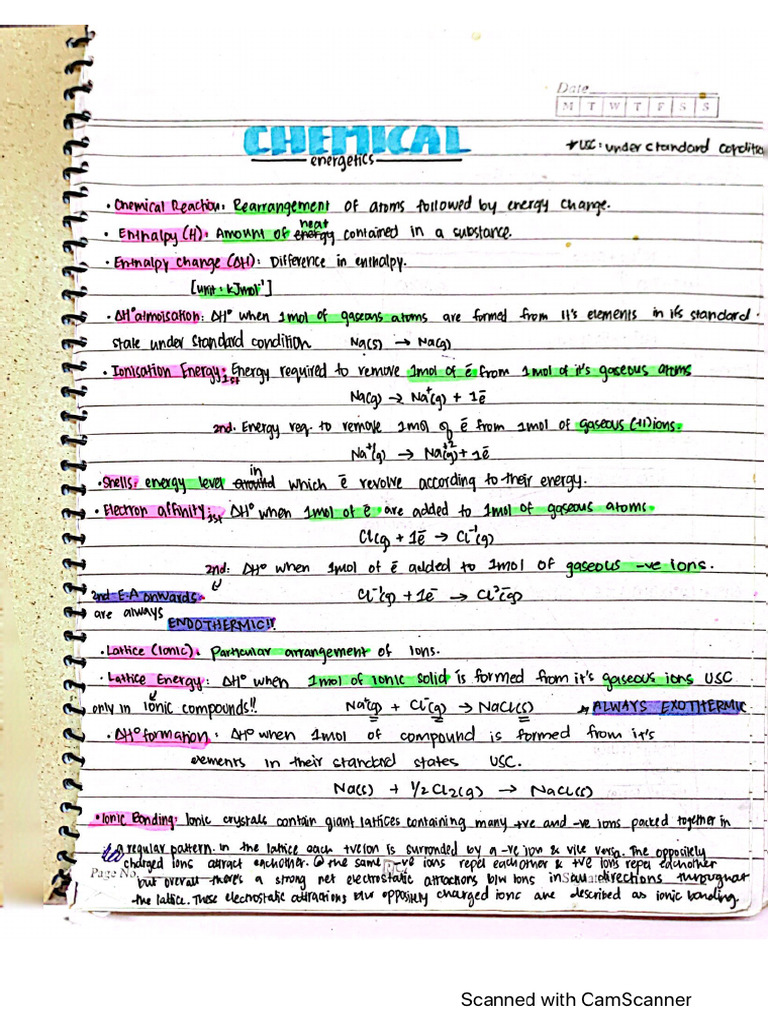 Date
M T W T F S S
CHEMICAL
energetics
* USC: under standard condition
• Chemical Reaction: Rearrangement of atoms followed by energy change.
• Enthalpy (H): Amount of energy heat contained in a substance.
• Enthalpy change (ΔH): Difference in enthalpy.
[unit: kJmol⁻¹]
• ΔH°atmoisation: ΔH° when 1mol of gaseous atoms are formed from it's elements in its standard
state under standard condition Na(s) → Na(g)
• Ionisation Energy: 1st Energy required to remove 1mol of ē from 1mol of it's gaseous atoms
Na(g) → Na⁺(g) + 1ē
2nd. Energy req. to remove 1mol of ē from 1mol of gaseous (+1) ions.
Na⁺(g) → Na⁺²(g) + 1ē
• Shells: energy level around in which ē revolve according to their energy.
• Electron affinity: 1st ΔH° when 1mol of ē are added to 1mol of gaseous atoms.
Cl(g) + 1ē → Cl⁻¹(g)
2nd: ΔH° when 1mol of ē added to 1mol of gaseous -ve ions.
2nd E.A onwards Cl⁻¹(g) + 1ē → Cl²⁻(g)
are always
ENDOTHERMIC!!
• Lattice (Ionic): Particular arrangement of ions.
• Lattice Energy: ΔH° when 1mol of ionic solid is formed from it's gaseous ions USC
only in ionic compounds!! Na⁺(g) + Cl⁻(g) → NaCl(s) * ALWAYS EXOTHERMIC
• ΔH°formation: ΔH° when 1mol of compound is formed from it's
elements in their standard states USC.
Na(s) + 1/2Cl₂(g) → NaCl(s)
• Ionic Bonding: Ionic crystals contain giant lattices containing many +ve and -ve ions packed together in
a regular pattern. In the lattice each +ve ion is surronded by a -ve ion & vice versa. The oppositely
charged ions attract eachother. @ the same -ve ions repel eachother & +ve ions repel eachother
Page No.
but overall there's a strong net electrostatic attractions b/w ions in all directions througout
the lattice. These electrostatic attractions b/w oppositely charged ions are described as ionic bonding.
Scanned with CamScanner